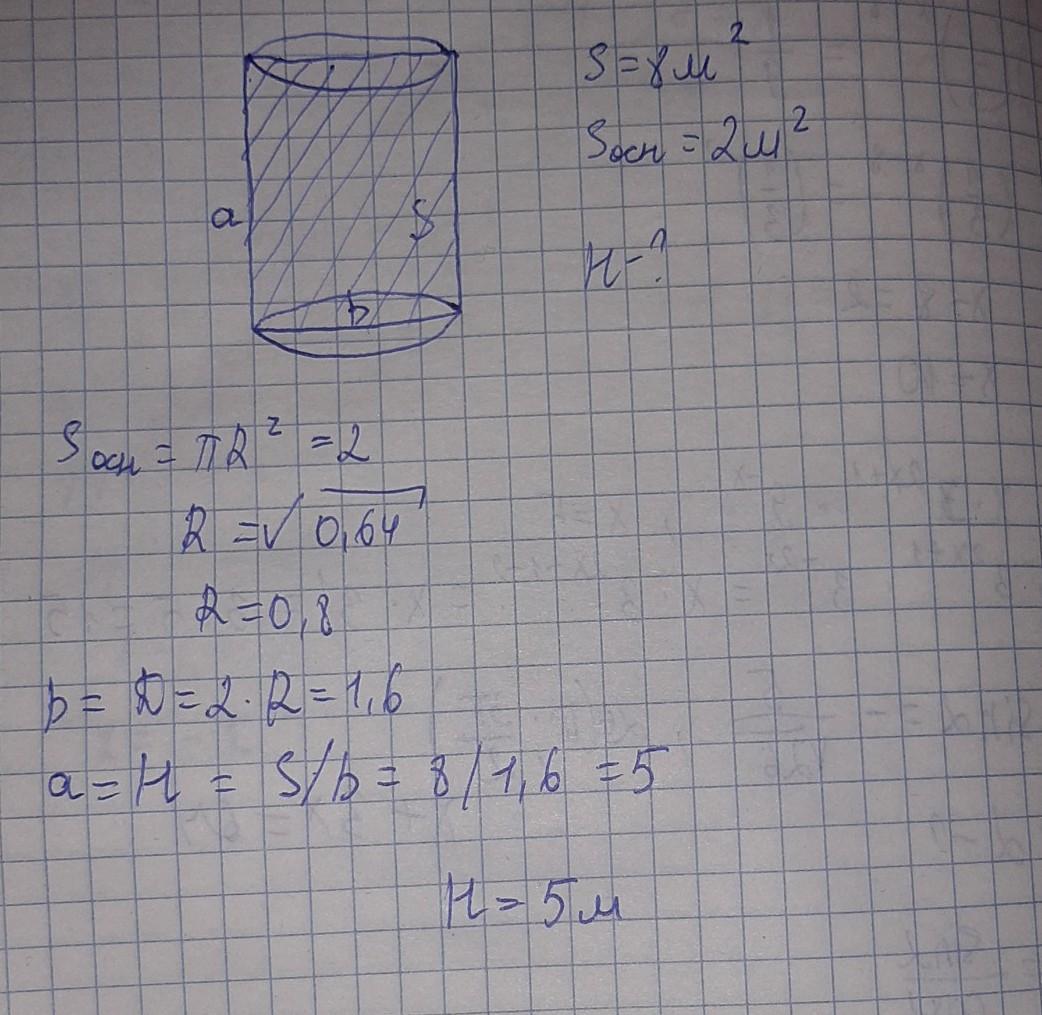 S = 8 м²
Sосн = 2 м²
a
S
H - ?
b
Sосн = πR² = 2
R = √0,64
R = 0,8
b = D = 2 · R = 1,6
a = H = S/b = 8/1,6 = 5
H = 5 м